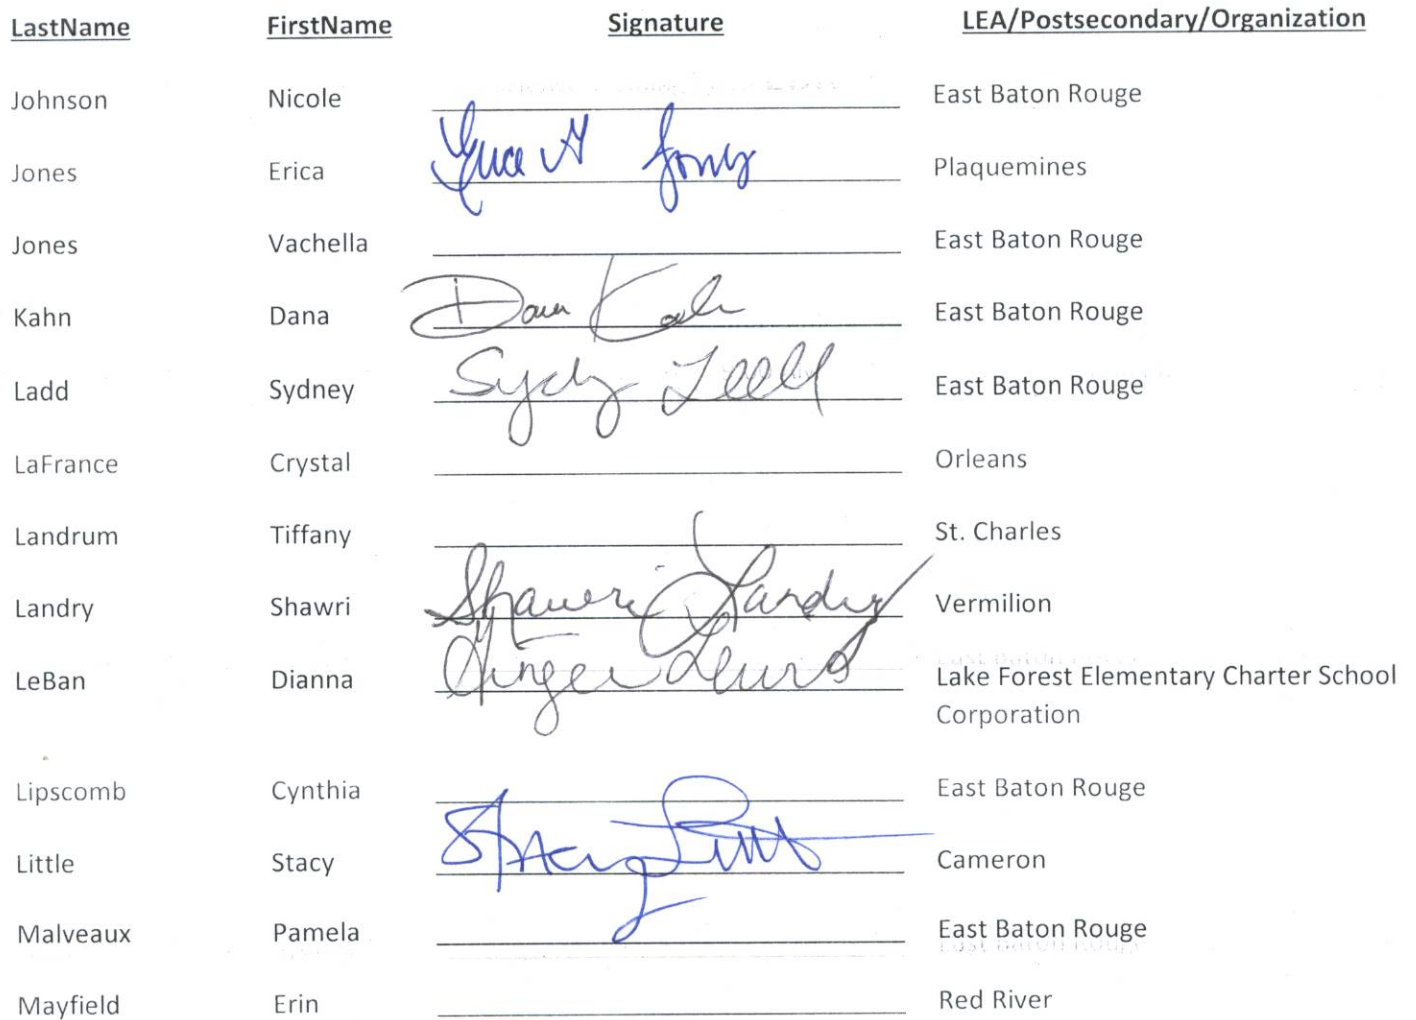 LastName FirstName Signature LEA/Postsecondary/Organization
Johnson Nicole East Baton Rouge
Jones Erica Erica Jones Plaquemines
Jones Vachella East Baton Rouge
Kahn Dana Dana Kahn East Baton Rouge
Ladd Sydney Sydney Ladd East Baton Rouge
LaFrance Crystal Orleans
Landrum Tiffany St. Charles
Landry Shawri Shawri Landry Vermilion
LeBan Dianna Ginger Lewis Lake Forest Elementary Charter School
Corporation
Lipscomb Cynthia East Baton Rouge
Little Stacy Stacy Little Cameron
Malveaux Pamela East Baton Rouge
Mayfield Erin Red River